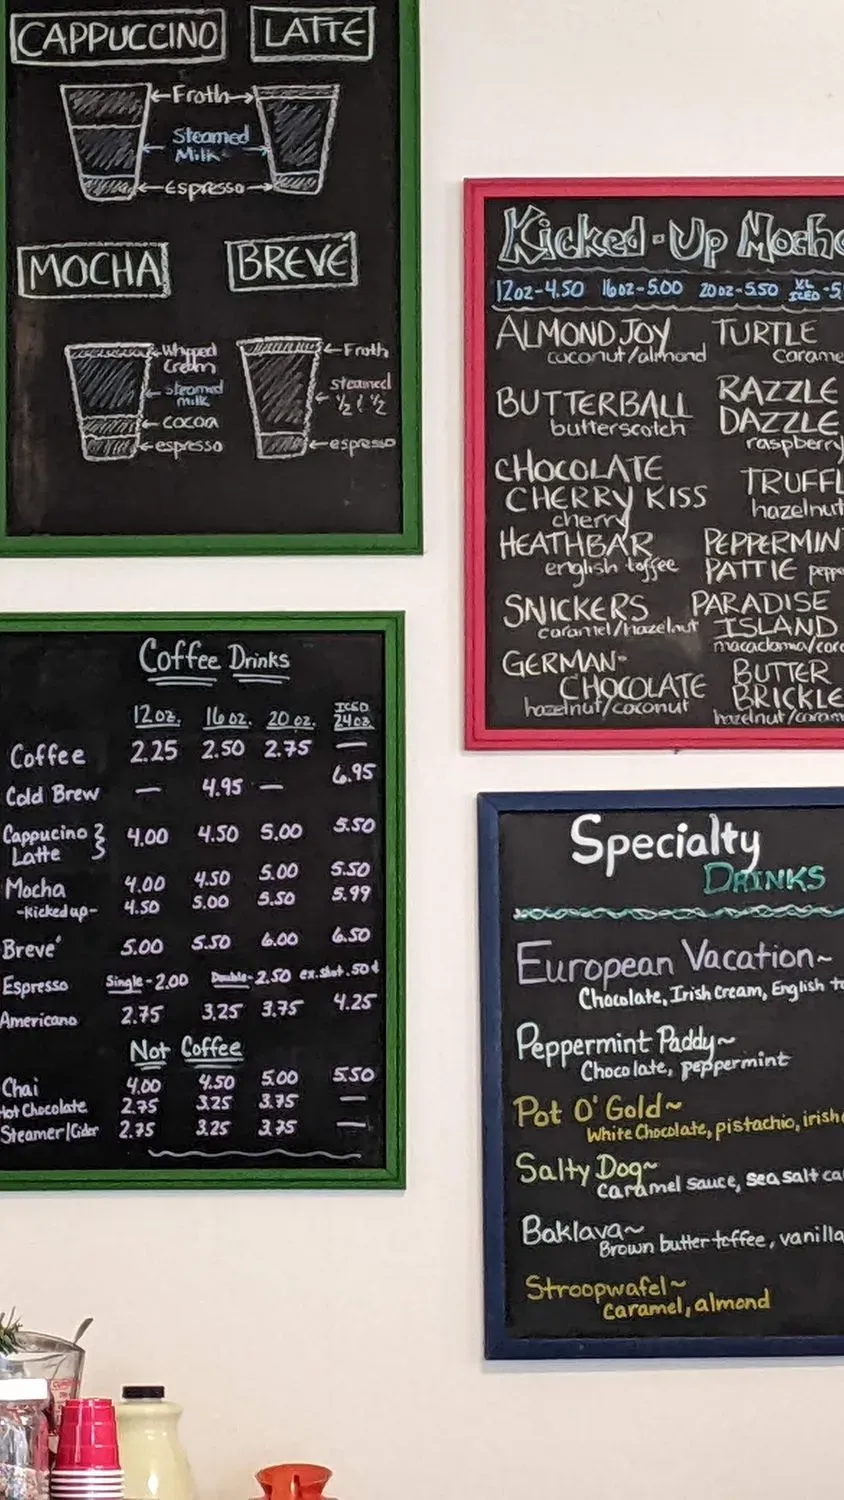 CAPPUCCINO LATTE
Froth
Steamed
Milk
Espresso
MOCHA BREVÉ
Whipped
Cream
steamed
milk
cocoa
espresso
Froth
steamed
½ & ½
espresso
Coffee Drinks
12 oz. 16 oz. 20 oz. ICED 24 oz.
Coffee 2.25 2.50 2.75 —
Cold Brew — 4.95 — 6.95
Cappucino
Latte 4.00 4.50 5.00 5.50
Mocha 4.00 4.50 5.00 5.50
-Kicked up- 4.50 5.00 5.50 5.99
Brevé 5.00 5.50 6.00 6.50
Espresso Single - 2.00 Double - 2.50 ex. shot .50¢
Americano 2.75 3.25 3.75 4.25
Not Coffee
Chai 4.00 4.50 5.00 5.50
Hot Chocolate 2.75 3.25 3.75 —
Steamer/Cider 2.75 3.25 3.75 —
Kicked-Up Mocha
12oz-4.50 16oz-5.00 20oz-5.50 XL ICED -5
ALMOND JOY
coconut/almond
BUTTERBALL
butterscotch
CHOCOLATE
CHERRY KISS
cherry
HEATHBAR
english toffee
SNICKERS
caramel/hazelnut
GERMAN-
CHOCOLATE
hazelnut/coconut
TURTLE
Carame
RAZZLE
DAZZLE
raspberry
TRUFFL
hazelnut
PEPPERMIN
PATTIE pepp
PARADISE
ISLAND
macadamia/coco
BUTTER
BRICKLE
hazelnut/caram
Specialty
DRINKS
European Vacation~
Chocolate, Irish Cream, English to
Peppermint Paddy~
Chocolate, peppermint
Pot O' Gold~
White Chocolate, pistachio, irish
Salty Dog~
Caramel sauce, sea salt ca
Baklava~
Brown butter toffee, vanilla
Stroopwafel~
Caramel, almond